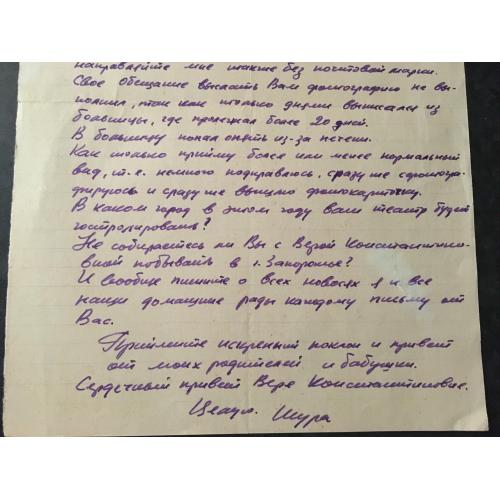 направляйте мне также без почтовой марки.
Свое обещание выслать Вам фотографию не вы-
полнил, так как только днями выписался из
больницы, где пролежал более 20 дней.
В больницу попал опять из-за печени.
Как только приму более или менее нормальный
вид, т.е. немного поправлюсь, сразу же сфотогра-
фируюсь и сразу же вышлю фотокарточку.
В каком город в этом году ваш театр будет
гастролировать?
Не собираетесь ли Вы с Верой Константинов-
вной побывать в г. Запорожье?
И вообще пишите о всех новостях я и все
наши домашние рады каждому письму от
Вас.
Примите искренный поклон и привет
от моих родителей и бабушки.
Сердечный привет Вере Константиновне.
Целую. Шура